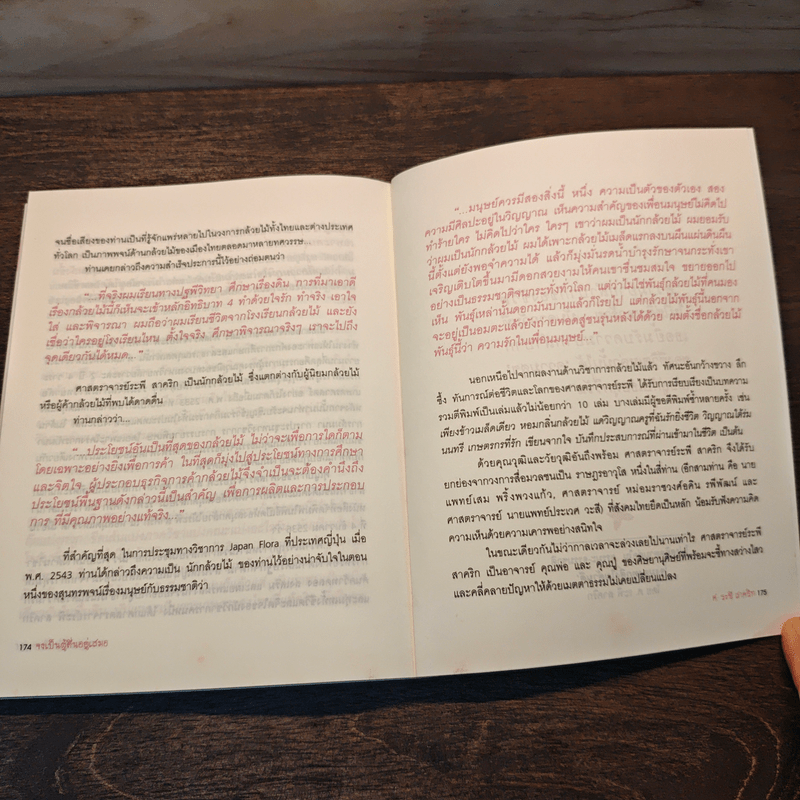 จนชื่อเสียงของท่านเป็นที่รู้จักแพร่หลายไปในวงการกล้วยไม้ทั้งไทยและต่างประเทศ
ทั่วโลก เป็นภาพพจน์ด้านกล้วยไม้ของเมืองไทยตลอดมาหลายทศวรรษ
ท่านเคยกล่าวถึงความสำเร็จประการนี้ไว้อย่างถ่อมตนว่า
"...ที่จริงผมเรียนทางปฐพีวิทยา ศึกษาเรื่องดิน การที่มาเอาดี
เรื่องกล้วยไม้นี่ก็เห็นจะเข้าหลักอิทธิบาท 4 ทำด้วยใจรัก ทำจริง เอาใจ
ใส่ และพิจารณา ผมถือว่าผมเรียนชีวิตจากโรงเรียนกล้วยไม้ และยัง
เชื่อว่าใครอยู่โรงเรียนไหน ตั้งใจจริง ศึกษาพิจารณาจริงๆ เราจะไปถึง
จุดเดียวกันได้หมด..."
ศาสตราจารย์ระพี สาคริก เป็นนักกล้วยไม้ ซึ่งแตกต่างกับผู้นิยมกล้วยไม้
หรือผู้ค้ากล้วยไม้ที่พบได้ดาดดื่น
ท่านกล่าวว่า...
"...ประโยชน์อันเป็นที่สุดของกล้วยไม้ ไม่ว่าจะเพื่อการใดก็ตาม
โดยเฉพาะอย่างยิ่งเพื่อการค้า ในที่สุดก็มุ่งไปสู่ประโยชน์ทางการศึกษา
และจิตใจ ผู้ประกอบธุรกิจการค้ากล้วยไม้จึงจำเป็นจะต้องคำนึงถึง
ประโยชน์พื้นฐานดังกล่าวนี้เป็นสำคัญ เพื่อการผลิตและการประกอบ
การ ที่มีคุณภาพอย่างแท้จริง..."
ที่สำคัญที่สุด ในการประชุมทางวิชาการ Japan Flora ที่ประเทศญี่ปุ่น เมื่อ
พ.ศ. 2543 ท่านได้กล่าวถึงความเป็น นักกล้วยไม้ ของท่านไว้อย่างน่าจับใจในตอน
หนึ่งของสุนทรพจน์เรื่องมนุษย์กับธรรมชาติว่า
174 จงเป็นผู้ตื่นอยู่เสมอ
"...มนุษย์ควรมีสองสิ่งนี้ หนึ่ง ความเป็นตัวของตัวเอง สอง
ความมีศิลปะอยู่ในวิญญาณ เห็นความสำคัญของเพื่อนมนุษย์ไม่คิดไป
ทำร้ายใคร ไม่คิดไปว่าใคร ใครๆ เขาว่าผมเป็นนักกล้วยไม้ ผมยอมรับ
ว่าผมเป็นนักกล้วยไม้ ผมได้เพาะกล้วยไม้เมล็ดแรกลงบนผืนแผ่นดินผืน
นี้ตั้งแต่ยังพอจำความได้ แล้วก็มุ่งมั่นรดน้ำบำรุงรักษาจนกระทั่งเขา
เจริญเติบโตขึ้นมามีดอกสวยงามให้คนเขาชื่นชมสมใจ ขยายออกไป
อย่างเป็นธรรมชาติจนกระทั่งทั่วโลก แต่ว่าไม่ใช่พันธุ์กล้วยไม้ที่คนมอง
เห็น พันธุ์เหล่านั้นดอกมันบานแล้วก็โรยไป แต่กล้วยไม้พันธุ์นั้นนอกจาก
จะอยู่เป็นอมตะแล้วยังถ่ายทอดสู่ชนรุ่นหลังได้ด้วย ผมตั้งชื่อกล้วยไม้
พันธุ์นี้ว่า ความรักในเพื่อนมนุษย์..."
นอกเหนือไปจากผลงานด้านวิชาการกล้วยไม้แล้ว ทัศนะอันกว้างขวาง ลึก
ซึ้ง ทันการณ์ต่อชีวิตและโลกของศาสตราจารย์ระพี ได้รับการเรียบเรียงเป็นบทความ
รวมตีพิมพ์เป็นเล่มแล้วไม่น้อยกว่า 10 เล่ม บางเล่มมีผู้ขอตีพิมพ์ซ้ำหลายครั้ง เช่น
เพียงข้าวเมล็ดเดียว หอมกลิ่นกล้วยไม้ แด่วิญญาณครูที่ฉันรักยิ่งชีวิต วิญญาณใต้ร่ม
นนทรี เกษตรกรที่รัก เขียนจากใจ บันทึกประสบการณ์ที่ผ่านเข้ามาในชีวิต เป็นต้น
ด้วยคุณวุฒิและวัยวุฒิอันถึงพร้อม ศาสตราจารย์ระพี สาคริก จึงได้รับ
ยกย่องจากวงการสื่อมวลชนเป็น ราษฎรอาวุโส หนึ่งในสี่ท่าน (อีกสามท่าน คือ นาย
แพทย์เสม พริ้งพวงแก้ว, ศาสตราจารย์ หม่อมราชวงศ์อคิน รพีพัฒน์ และ
ศาสตราจารย์ นายแพทย์ประเวศ วะสี) ที่สังคมไทยยึดเป็นหลัก น้อมรับฟังความคิด
ความเห็นด้วยความเคารพอย่างสนิทใจ
ในขณะเดียวกันไม่ว่ากาลเวลาจะล่วงเลยไปนานเท่าไร ศาสตราจารย์ระพี
สาคริก เป็นอาจารย์ คุณพ่อ และ คุณปู่ ของศิษยานุศิษย์ที่พร้อมจะชี้ทางสว่างไสว
และคลี่คลายปัญหาให้ด้วยเมตตาธรรมไม่เคยเปลี่ยนแปลง
ศ. ระพี สาคริก 175